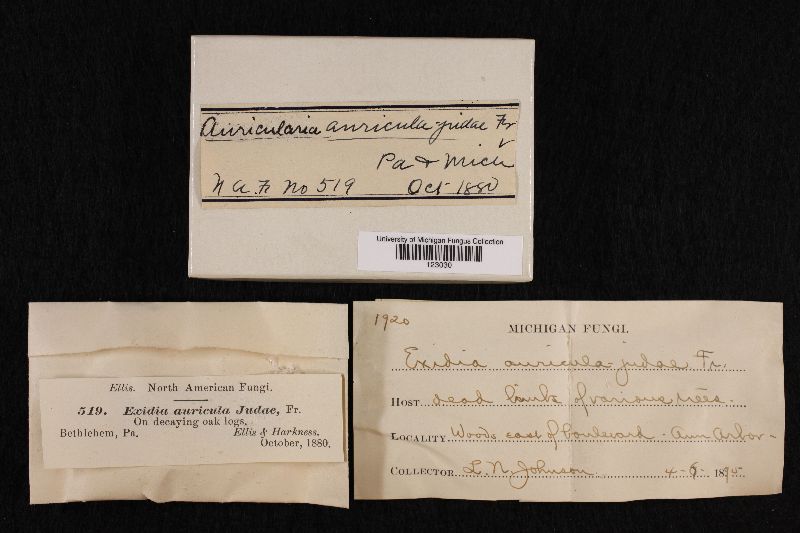 Auricularia auricula-judae Fr
Pa & Mich
N A. F. No 519 Oct 1880
University of Michigan Fungus Collection
123030
Ellis. North American Fungi.
519. Exidia auricula Judae, Fr.
On decaying oak logs.
Bethlehem, Pa. Ellis & Harkness.
October, 1880.
1920
MICHIGAN FUNGI.
Exidia auricula-judae Fr.
HOST dead limbs of various trees.
LOCALITY Woods east of boulevard - Ann Arbor -
COLLECTOR L. N. Johnson 4-6- 1895